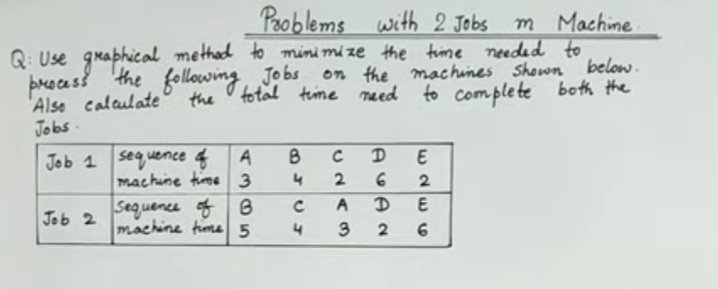 Problems with 2 Jobs m Machine.
Q: Use graphical method to minimize the time needed to
process the following Jobs on the machines shown below.
Also calculate the total time need to complete both the
Jobs.
Job 1 sequence of A B C D E
machine time 3 4 2 6 2
Job 2 Sequence of B C A D E
machine time 5 4 3 2 6